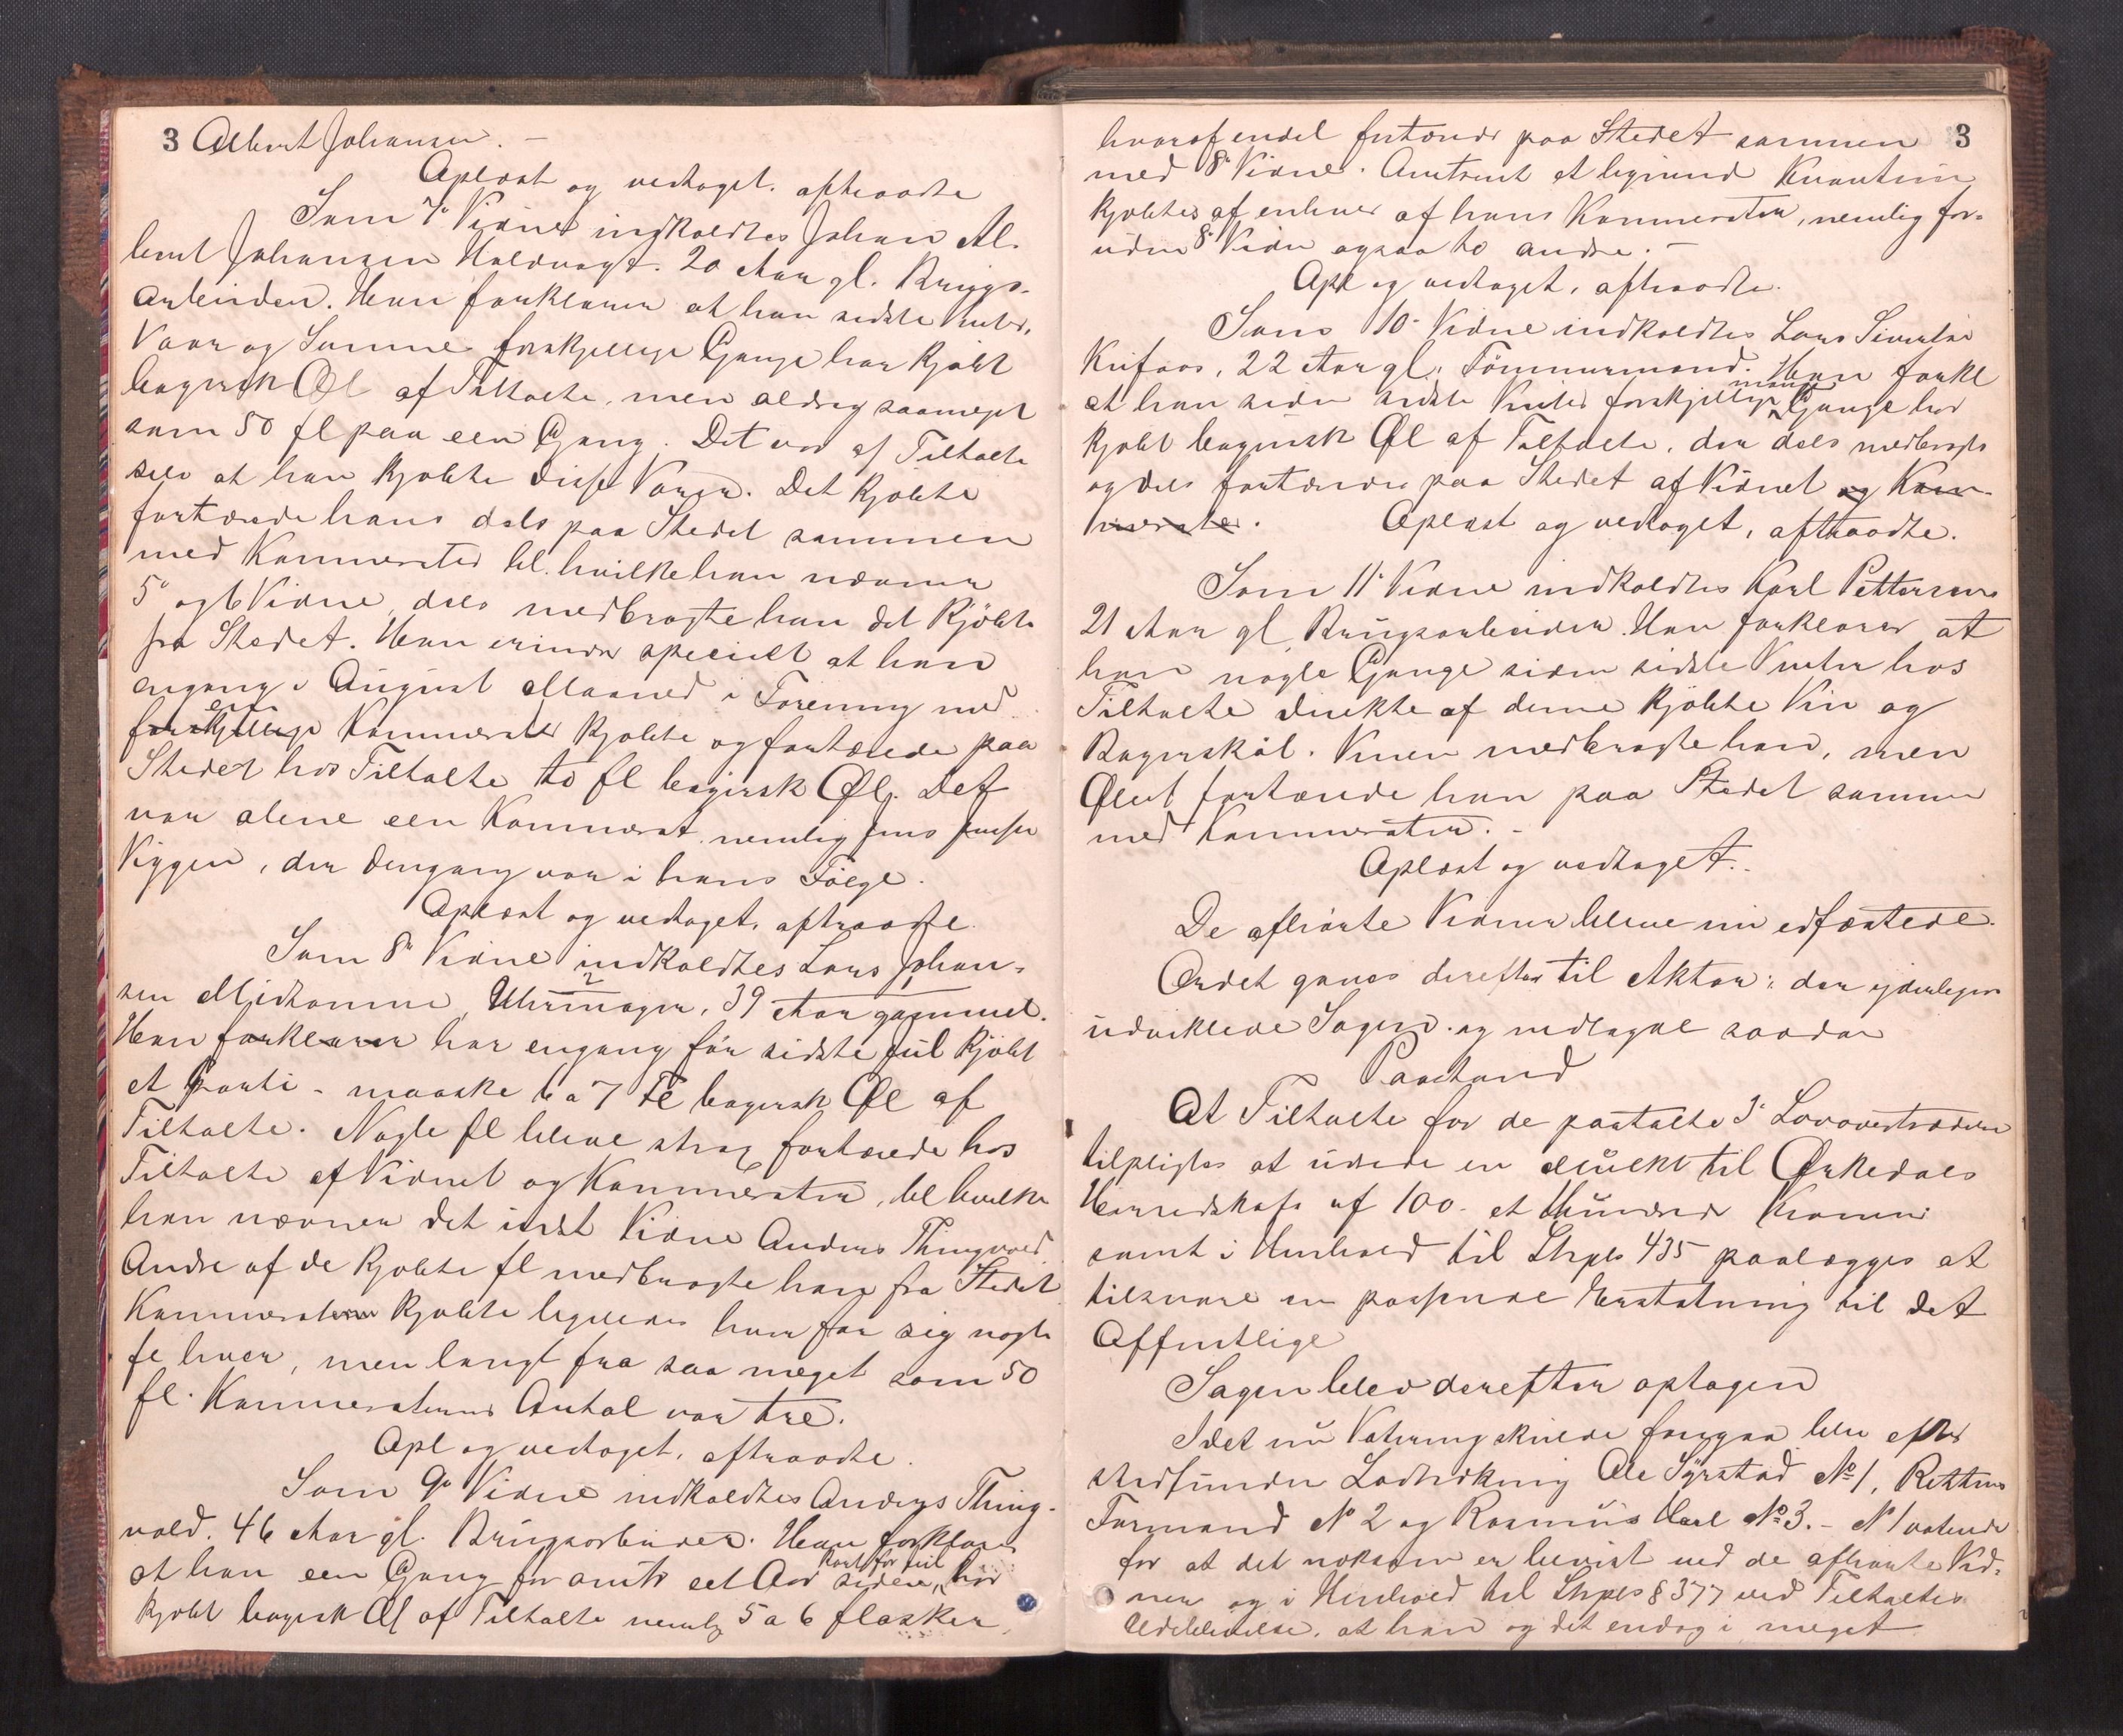 3 Albert Johansen. —
Oplæst og vedtaget. aftraadte
Som 7de Vidne indkaldtes Johan Al-
bert Johansen Holdvagt. 20 Aar gl. Brugs-
arbeider. Han forklarer at han sidste Vinter,
Vaar og Sommer forskjellige Gange har kjøbt
bayersk Øl af Tiltalte, men aldrig saameget
som 50 fl paa een Gang. Det var af Tiltalte
selv at han kjøbte disse Varer. Det kjøbte
fortærede hans dels paa Stedet sammen
med Kammerater til hvilke han nævner
5 og 6 Vidne, dels medbragte han det kjøbte
fra Stedet. Han erindrer specielt at han
engang i August Maaned i Forening med
en
forskjellige Kammerater kjøbte og fortærede paa
Stedet hos Tiltalte to fl bayersk Øl. Det
var alene een Kammerat nemlig Jens Jensen
Viggen, der dengang var i hans Følge.
Oplæst og vedtaget, aftraadte.
Som 8de Vidne indkaldtes Lars Johan-
sen Midtømme, Uhrmager, 39 Aar gammel.
Han forklarer har engang før sidste Jul kjøbt
et Parti - maaske 6 a 7 Fl bayersk Øl af
Tiltalte. Nogle fl bleve strax fortærede hos
Tiltalte af Vidnet og Kammerater, til hvilke
han nævner det indst Vidne Anders Thingvold
Andre af de kjøbte fl medbragte han fra Stedet
Kammeraterne kjøbte ligeledes hver for sig nogle
fl hver, men langt fra saa meget som 50
fl. Kammeraternes Antal var tre.
Opl og vedtaget, aftraadte.
Som 9de Vidne indkaldtes Anders Thing-
vold. 46 Aar gl. Brugsarbeider. Han forklarer
at han een Gang for omtr eet Aar siden, kort før Jul har
kjøbt bayersk Øl af Tiltalte nemlig 5 a 6 flasker,
3
hvoraf endel fortæredes paa Stedet sammen
med 8de Vidne. Omtrent et lignende Kvantum
kjøbtes af enhver af hans Kammerater, nemlig for-
uden 8de Vidne ogsaa to andre. —
Opl og vedtaget, aftraadte.
Som 10de Vidne indkaldtes Lars Sivertsen
22 Aar gl, Tømmermand. Han forkl
at han siden sidste Vinter forskjellige mange Gange har
kjøbt bayersk Øl af Tiltalte, der dels medbragtes
og dels fortæredes paa Stedet af Vidnet og Kam-
merater. Oplæst og vedtaget, aftraadte.
Som 11te Vidne indkaldtes Karl Pettersen
21 Aar gl, Brugsarbeider. Han forklarer at
han nogle Gange siden sidste Vinter hos
Tiltalte direkte af denne kjøbte Vin og
Bayerskøl. Vinen medbragte han, men
Ølet fortærede han paa Stedet sammen
med Kammerater. -
Oplæst og vedtaget. -
De afhørte Vidner bleve nu edfæstede.
Ordet gaves derefter til Aktor; der yderligere
udviklede Sagen og nedlagde saadan
Paastand
At Tiltalte for de paatalte 3de Lovovertrædelser
tilpligtes at udrede en Mulkt til Ørkedals
Herredskasse af 100 - et Hundrede Kroner
samt i Henhold til Strpls 435 paalægges at
tilsvare en passende Erstatning til det
Offentlige
Sagen blev derefter optagen
Idet nu Votering skulde foregaa blev efter
stedfunden Lodtrækning Ole Syrstad No 1, Rettens
Formand No 2 og Rasmus No 3. - No 1 voterede
for at det noksom er bevist ved de afhørte Vid-
ner og i Henhold til Strpls § 377 ved Tiltaltes
Udeblivelse, at han og det endog i meget